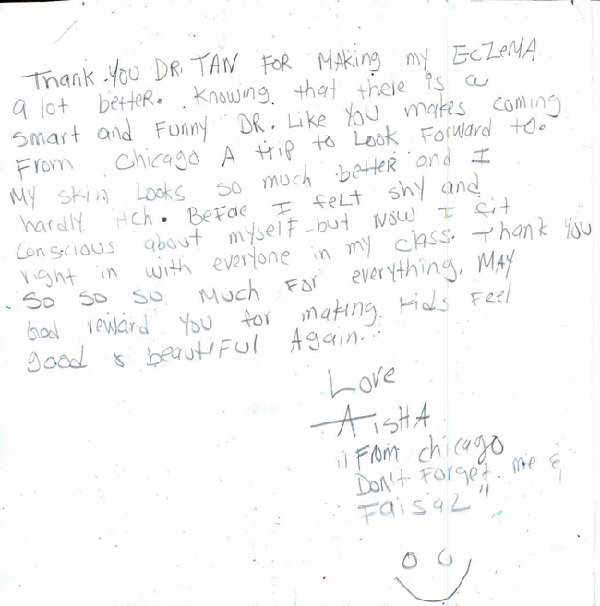 Thank You DR. TAN FOR MAking my EcZeMA
a lot better. Knowing that there is a
smart and Funny DR. Like You makes coming
From Chicago A trip to Look Forward to.
My skin Looks so much better and I
hardly itch. Before I felt shy and
conscious about myself but Now I fit
right in with everyone in my class. Thank You
So so so Much For everything. MAY
God reward You for making kids Feel
good & beautiFul Again.
Love
AishA
"From chicago
Don't Forget me &
Faisal"